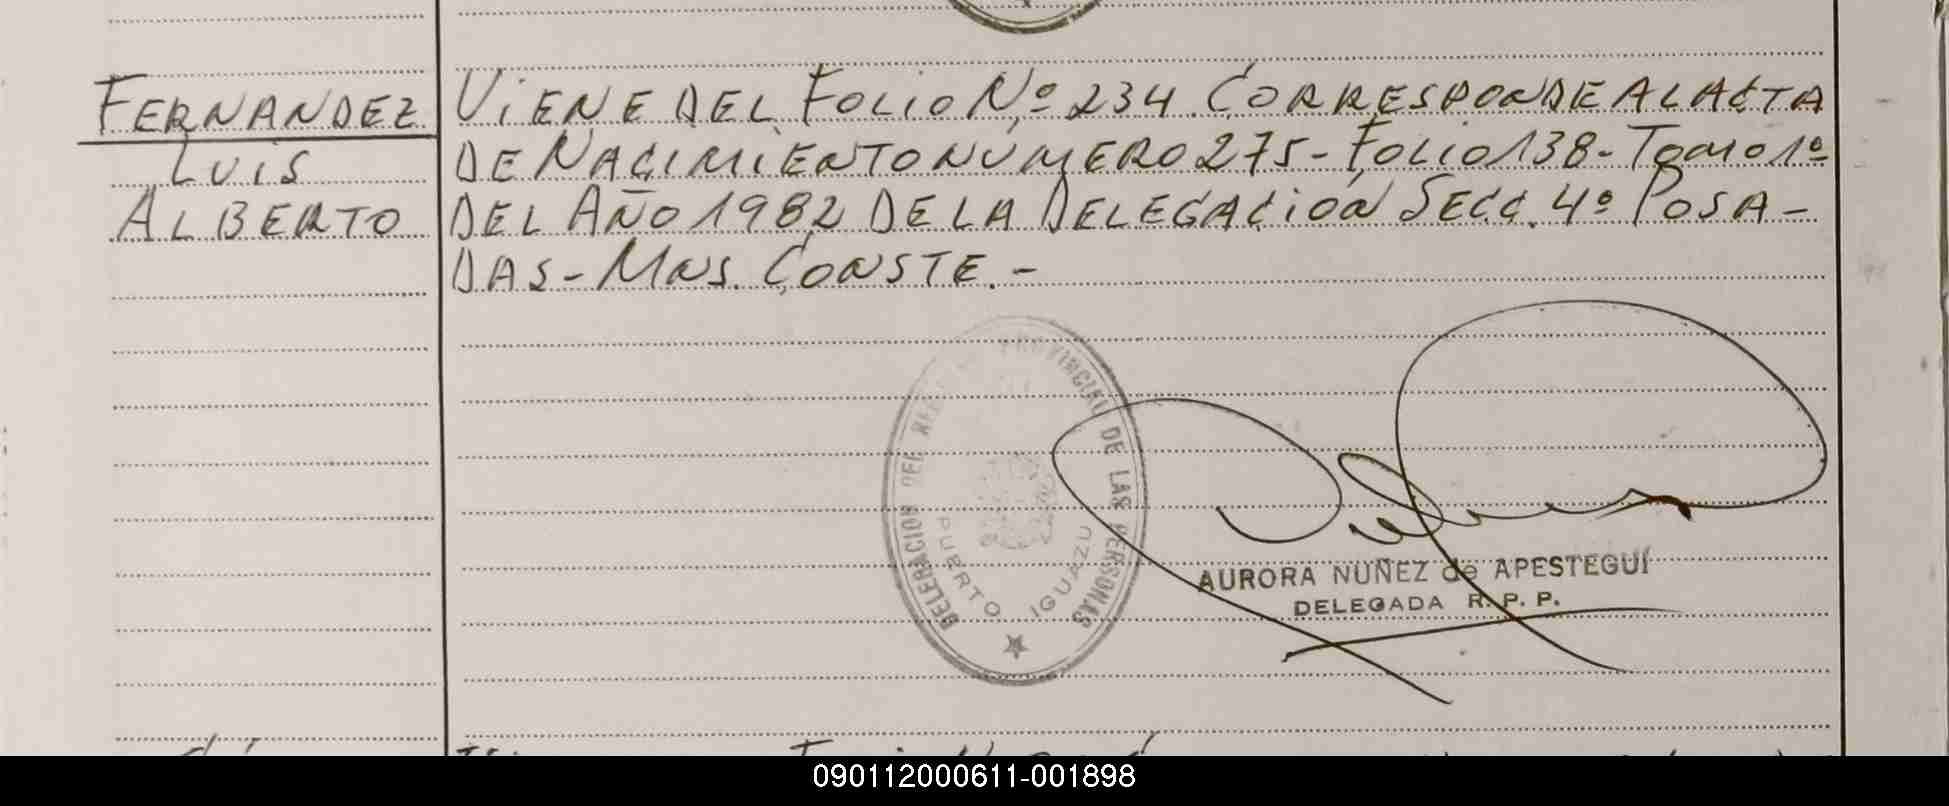 FERNANDEZ
LUIS
ALBERTO
VIENE DEL FOLIO Nº 234. CORRESPONDE AL ACTA
DE NACIMIENTO NUMERO 275 - FOLIO 138 - TOMO 1º
DEL AÑO 1982 DE LA DELEGACIÓN SECC. 4º POSA-
DAS - MNS. CONSTE. -
PROVINCIAL DE LAS PERSONAS
DELEGACION DEL
PUERTO IGUAZU
AURORA NUÑEZ de APESTEGUÍ
DELEGADA R. P. P.
090112000611-001898